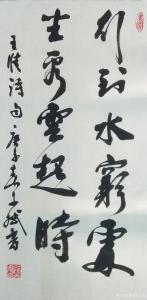 行到水窮處
坐看雲起時
王維詩句 庚子春